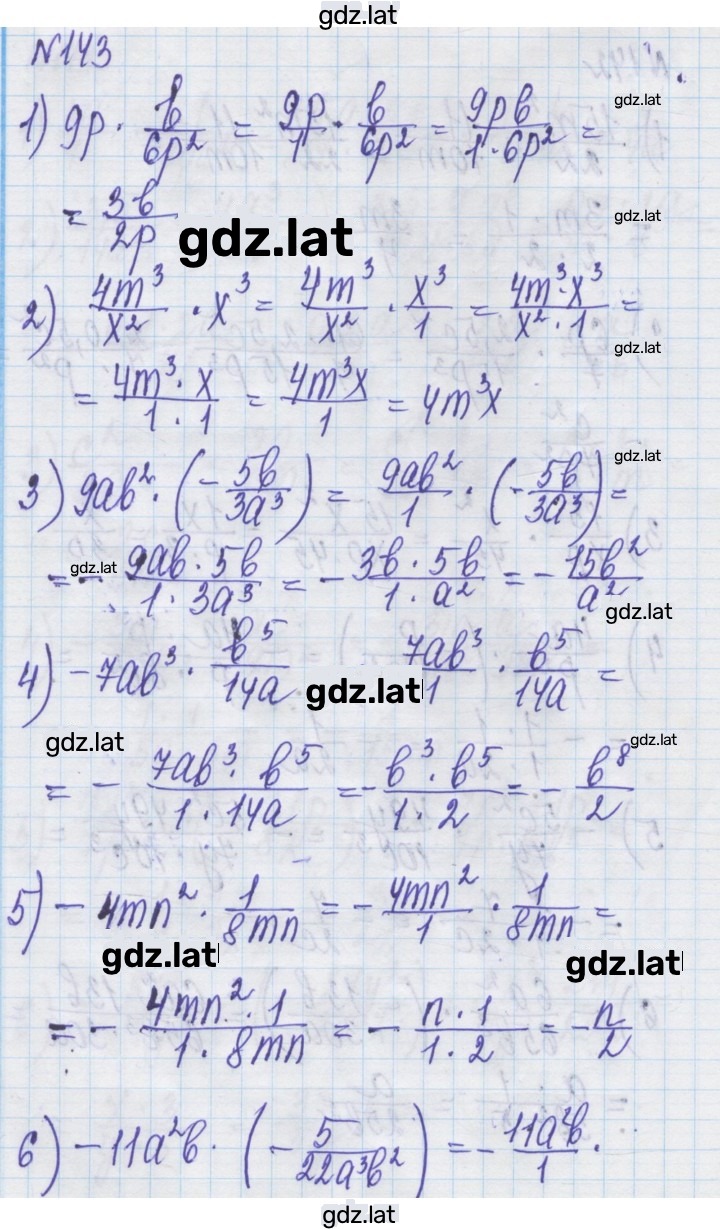 gdz.lat
N143
1) 9p · b/6p² = 9p/1 · b/6p² = 9pb/1·6p² =
gdz.lat
= 3b/2p
gdz.lat
gdz.lat
2) 4m³/x² · x³ = 4m³/x² · x³/1 = 4m³·x³/x²·1 =
gdz.lat
= 4m³·x/1·1 = 4m³x/1 = 4m³x
gdz.lat
3) 9ab² · (-5b/3a³) = 9ab²/1 · (-5b/3a³) =
gdz.lat
= - 9ab·5b/1·3a³ = - 3b·5b/1·a² = - 15b²/a²
gdz.lat
4) -7ab³ · b⁵/14a 7ab³/1 · b⁵/14a =
gdz.lat
gdz.lat
gdz.lat
= - 7ab³·b⁵/1·14a = - b³·b⁵/1·2 = - b⁸/2
5) -4mn² · 1/8mn = - 4mn²/1 · 1/8mn =
gdz.lat
gdz.lat
= - 4mn²·1/1·8mn = - n·1/1·2 = - n/2
6) -11a²b · (-5/22a³b²) = - 11a²b/1 ·
gdz.lat